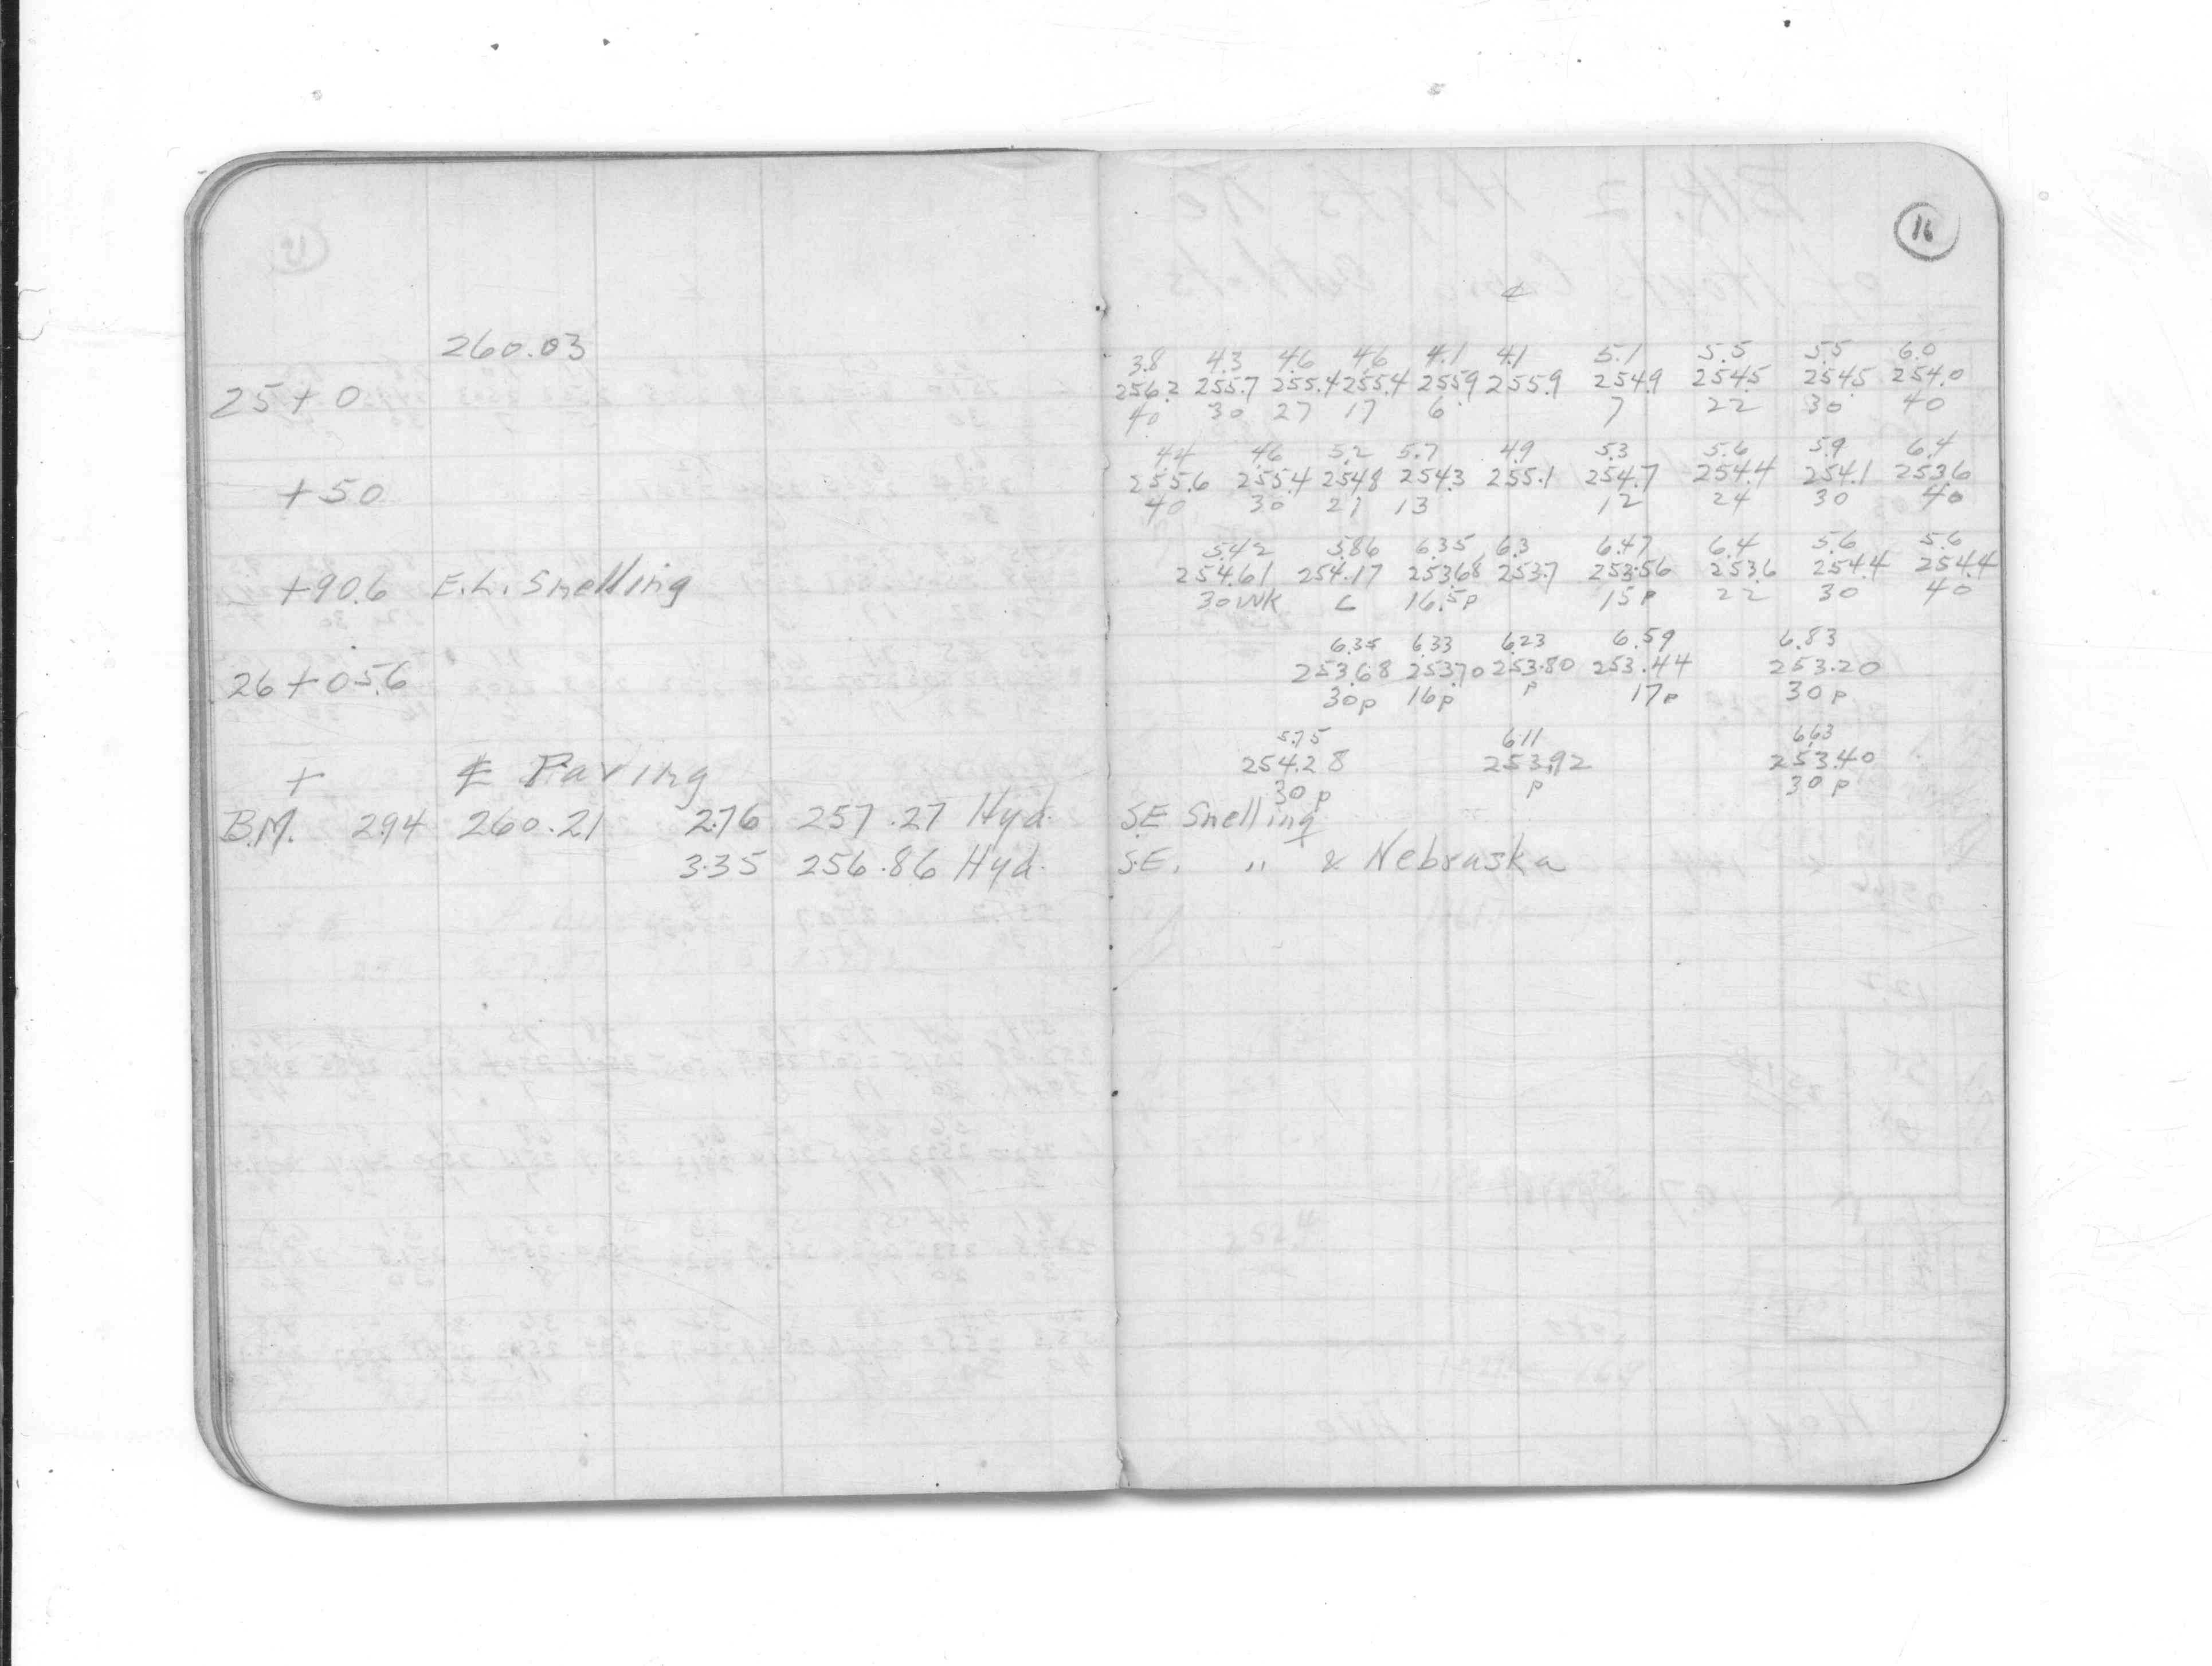 16
℄
260.03
3.8 4.3 4.6 4.6 4.1 4.1 5.1 5.5 5.5 6.0
25+0 256.2 255.7 255.4 255.4 255.9 255.9 254.9 254.5 254.5 254.0
40 30 27 17 6 7 22 30 40
4.4 4.6 5.2 5.7 4.9 5.3 5.6 5.9 6.4
+50 255.6 255.4 254.8 254.3 255.1 254.7 254.4 254.1 253.6
40 30 21 13 12 24 30 40
5.42 5.86 6.35 6.3 6.47 6.4 5.6 5.6
+90.6 E.L. Snelling 254.61 254.17 253.68 253.7 253.56 253.6 254.4 254.4
30WK C 16.5p 15p 22 30 40
6.35 6.33 6.23 6.59 6.83
26+05.6 253.68 253.70 253.80 253.44 253.20
30p 16p p 17p 30p
5.75 6.11 6.63
+ ℄ Paving 254.28 253.92 253.40
30p p 30p
B.M. 2.94 260.21 2.76 257.27 Hyd. SE Snelling
3.35 256.86 Hyd. S.E. " & Nebraska